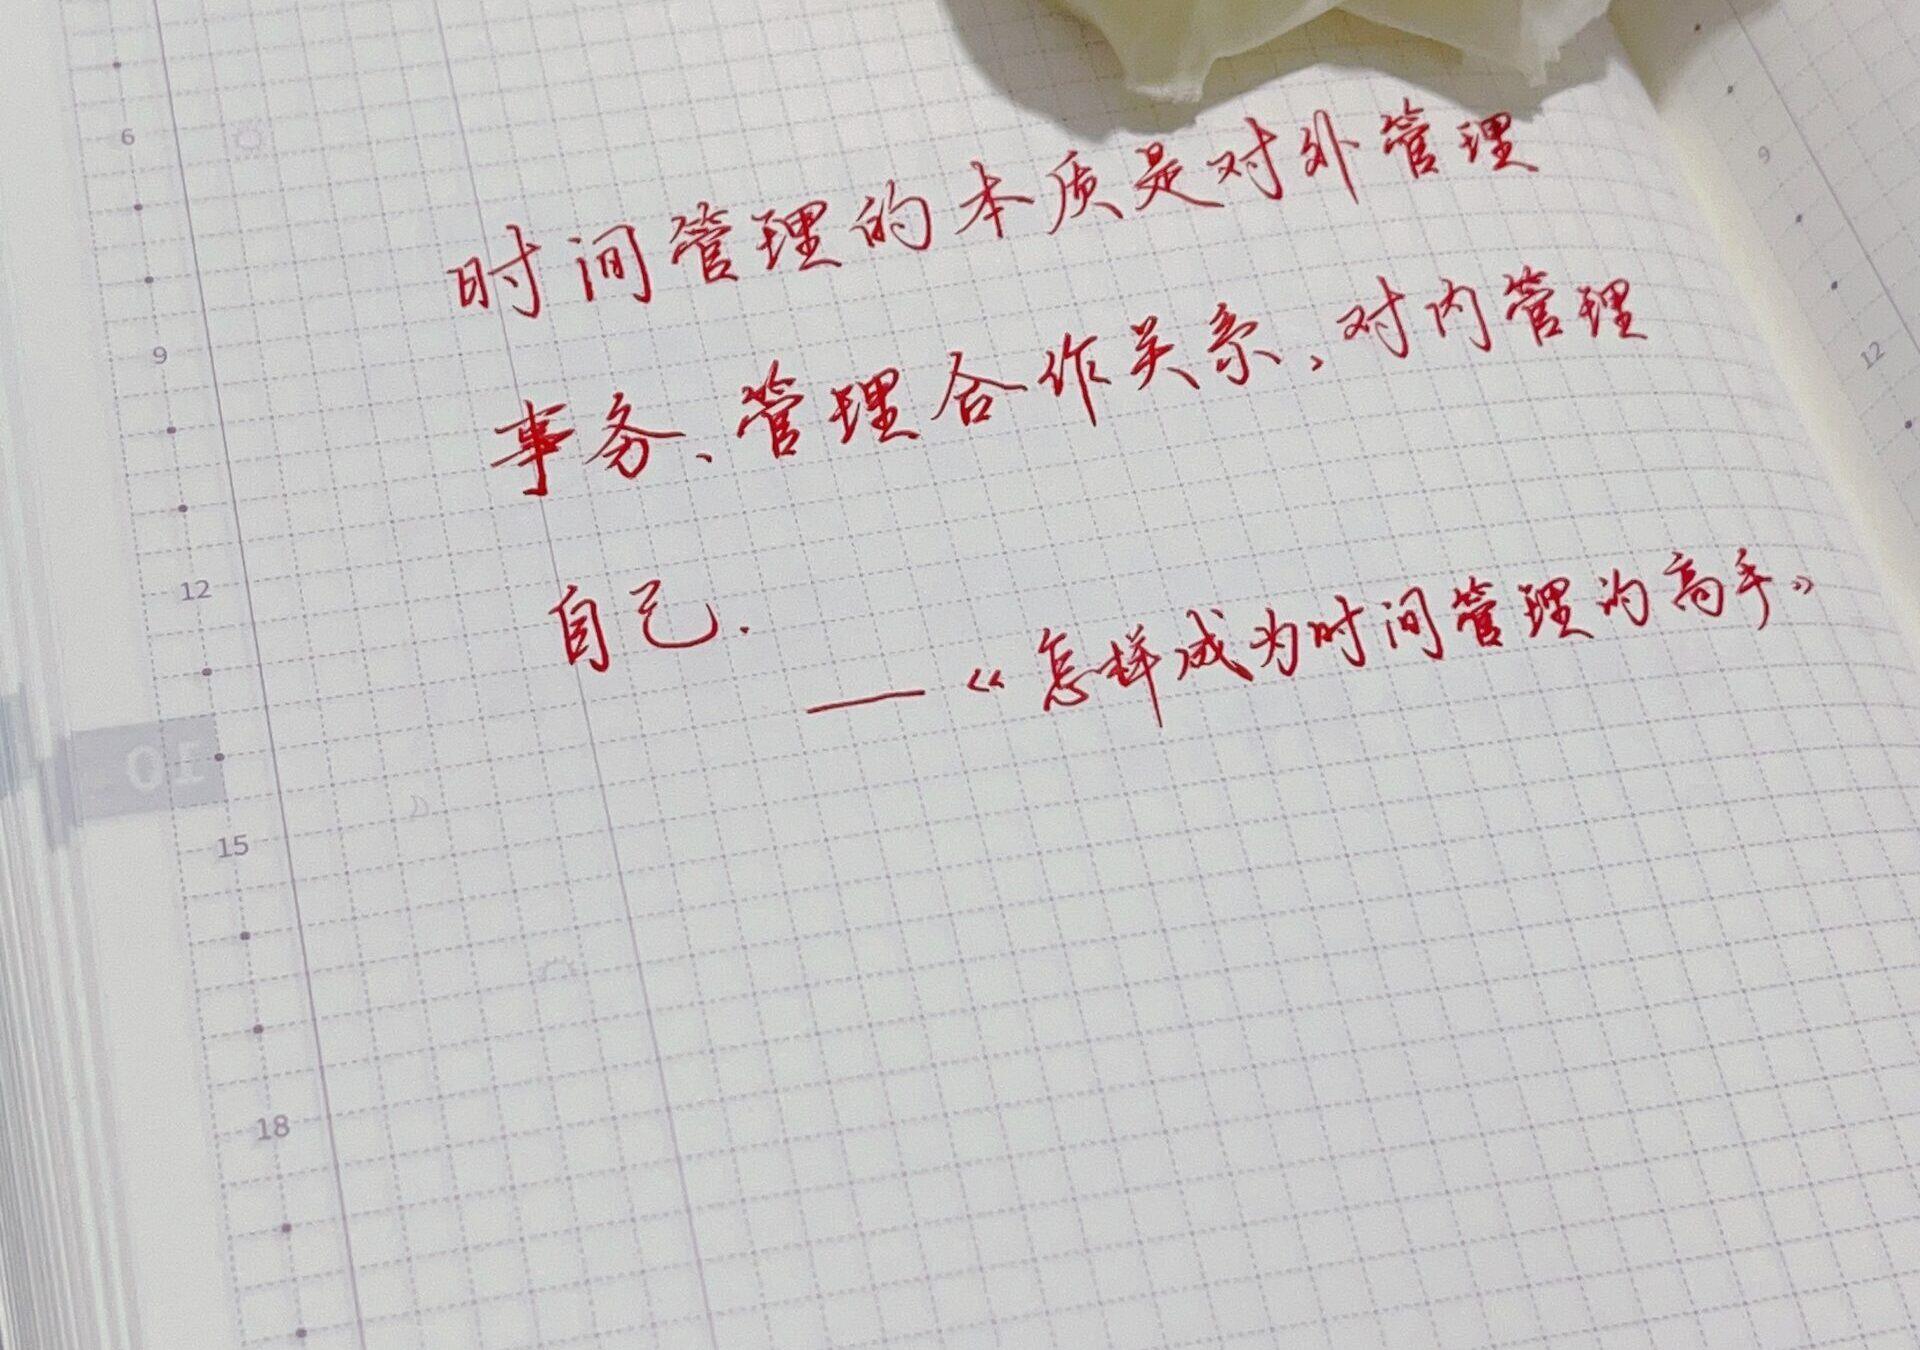 时间管理的本质是对外管理
事务、管理合作关系，对内管理
自己.
——《怎样成为时间管理的高手》
6
9
12
15
18
9
12